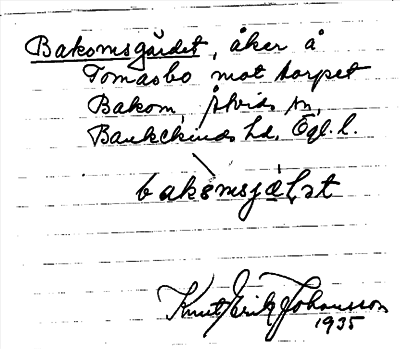 Bakomsgärdet, åker å
Tomasbo mot torpet
Bakom, Åtvids sn,
Bankekinds hd. Ögl. l.
bakómsjælst
Knut Erik Johansson
1935